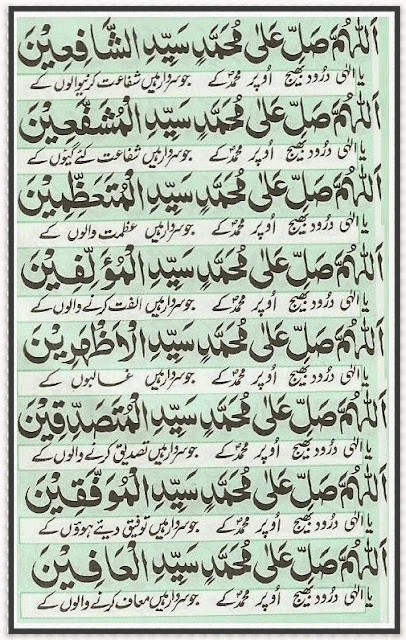 اَللّٰهُمَّ صَلِّ عَلٰى مُحَمَّدٍ سَيِّدِ الشَّافِعِيْنَ
یا الٰہی درود بھیج اُوپر محمدؐ کے جو سردار ہیں شفاعت کرنیوالوں کے
اَللّٰهُمَّ صَلِّ عَلٰى مُحَمَّدٍ سَيِّدِ الْمُشَفَّعِيْنَ
یا الٰہی درود بھیج اُوپر محمدؐ کے جو سردار ہیں شفاعت کئے گیوں کے
اَللّٰهُمَّ صَلِّ عَلٰى مُحَمَّدٍ سَيِّدِ الْمُتَعَظِّمِيْنَ
یا الٰہی درود بھیج اُوپر محمدؐ کے جو سردار ہیں عظمت والوں کے
اَللّٰهُمَّ صَلِّ عَلٰى مُحَمَّدٍ سَيِّدِ الْمُؤَلِّفِيْنَ
یا الٰہی درود بھیج اُوپر محمدؐ کے جو سردار ہیں الفت کرنے والوں کے
اَللّٰهُمَّ صَلِّ عَلٰى مُحَمَّدٍ سَيِّدِ
یا الٰہی درود بھیج اُوپر محمدؐ کے جو سردار ہیں غالبوں کے
اَللّٰهُمَّ صَلِّ عَلٰى مُحَمَّدٍ سَيِّدِ الْمُتَصَدِّقِيْنَ
یا الٰہی درود بھیج اُوپر محمدؐ کے جو سردار ہیں تصدیق کرنے والوں کے
اَللّٰهُمَّ صَلِّ عَلٰى مُحَمَّدٍ سَيِّدِ الْمُوَفَّقِيْنَ
یا الٰہی درود بھیج اُوپر محمدؐ کے جو سردار ہیں توفیق دیئے ہوؤں کے
اَللّٰهُمَّ صَلِّ عَلٰى مُحَمَّدٍ سَيِّدِ الْعَافِيْنَ
یا الٰہی درود بھیج اُوپر محمدؐ کے جو سردار ہیں معاف کرنے والوں کے